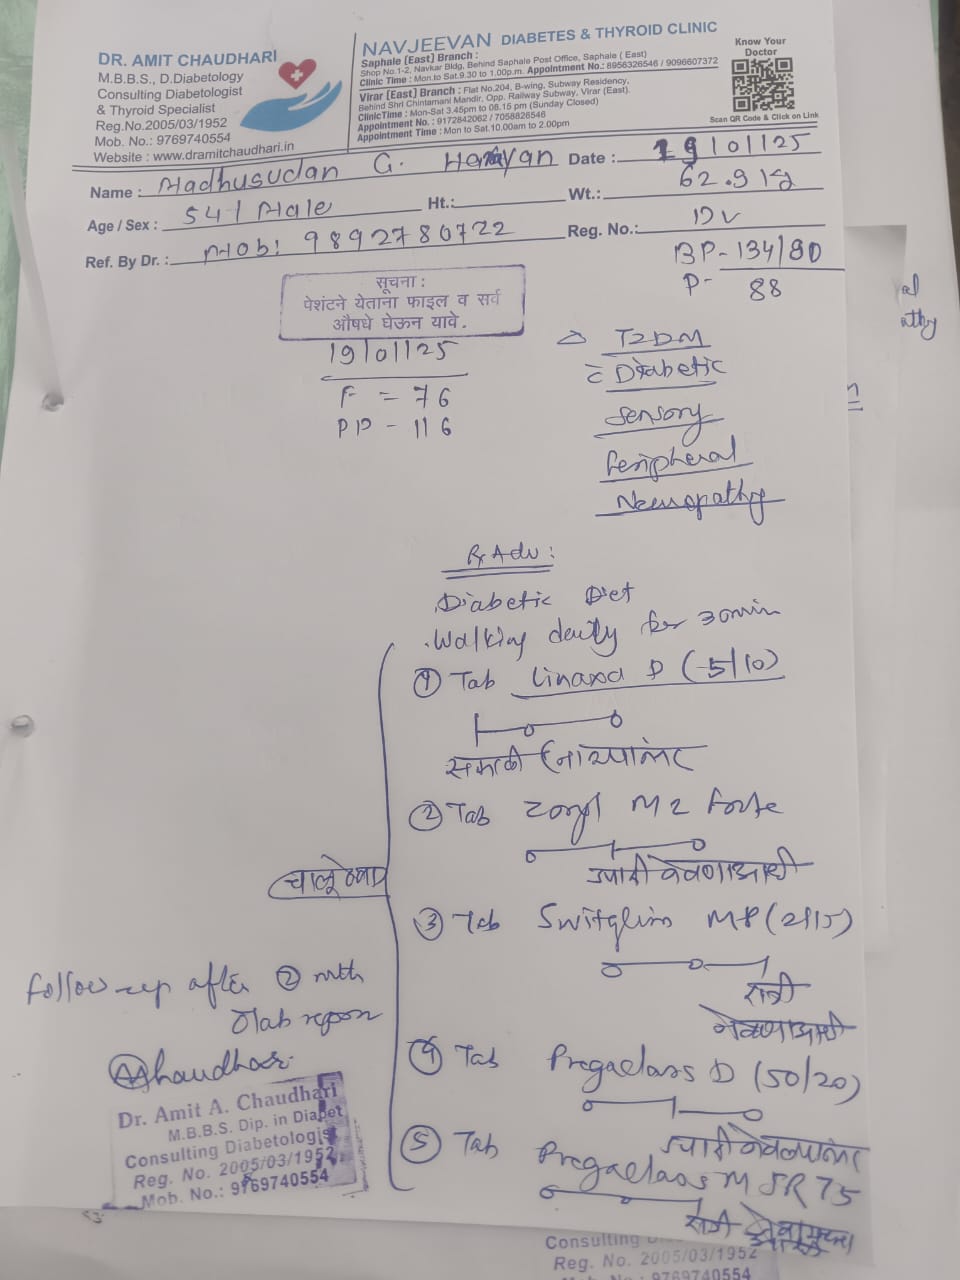 DR. AMIT CHAUDHARI
M.B.B.S., D.Diabetology
Consulting Diabetologist
& Thyroid Specialist
Reg.No.2005/03/1952
Mob. No.: 9769740554
Website : www.dramitchaudhari.in
NAVJEEVAN DIABETES & THYROID CLINIC
Saphale (East) Branch :
Shop No.1-2, Navkar Bldg, Behind Saphale Post Office, Saphale ( East)
Clinic Time : Mon.to Sat.9.30 to 1.00p.m. Appointment No.: 8956326546 / 9096607372
Virar (East) Branch : Flat No.204, B-wing, Subway Residency,
Behind Shri Chintamani Mandir, Opp. Railway Subway, Virar (East).
ClinicTime : Mon-Sat 3.45pm to 08.15 pm (Sunday Closed)
Appointment No. : 9172842062 / 7058826546
Appointment Time : Mon to Sat.10.00am to 2.00pm
Know Your
Doctor
Scan QR Code & Click on Link
Name : Madhusudan G. Date : 19/01/25
Age / Sex : 54 / Male Ht.: Wt.: 62.9 kg
Ref. By Dr. : Mob: 9892780722 Reg. No.:
BP - 134/80
P - 88
सूचना :
पेशंटने येताना फाइल व सर्व
औषधे घेऊन यावे.
19/01/25
F = 76
PP - 116
T2DM
c̄ Diabetic
Sensory
Peripheral
Neuropathy
Rx Adv :
Diabetic Diet
. Walking daily for 30 min
① Tab Linaxa D (5/10)
सकाळी नाश्यानंतर
② Tab Zoryl M2 Forte
दुपारी जेवणाआधी
चालू ठेवा
③ Tab Switglim MP (2/15)
रात्री
जेवणाआधी
Follow up after ② mth
lab report
AAChaudhari
④ Tab Pregaclass D (50/20)
दुपारी जेवल्यानंतर
⑤ Tab Pregaclass M SR 75
रात्री
Dr. Amit A. Chaudhari
M.B.B.S. Dip. in Diabet
Consulting Diabetologist
Reg. No. 2005/03/1952
Mob. No.: 9769740554
Consulting
Reg. No. 2005/03/1952
9769740554